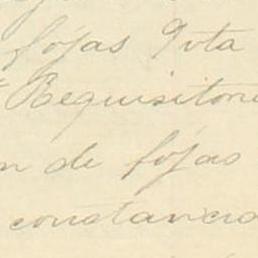 fojas 9 vta
Requisitori
n de fojas
constancia